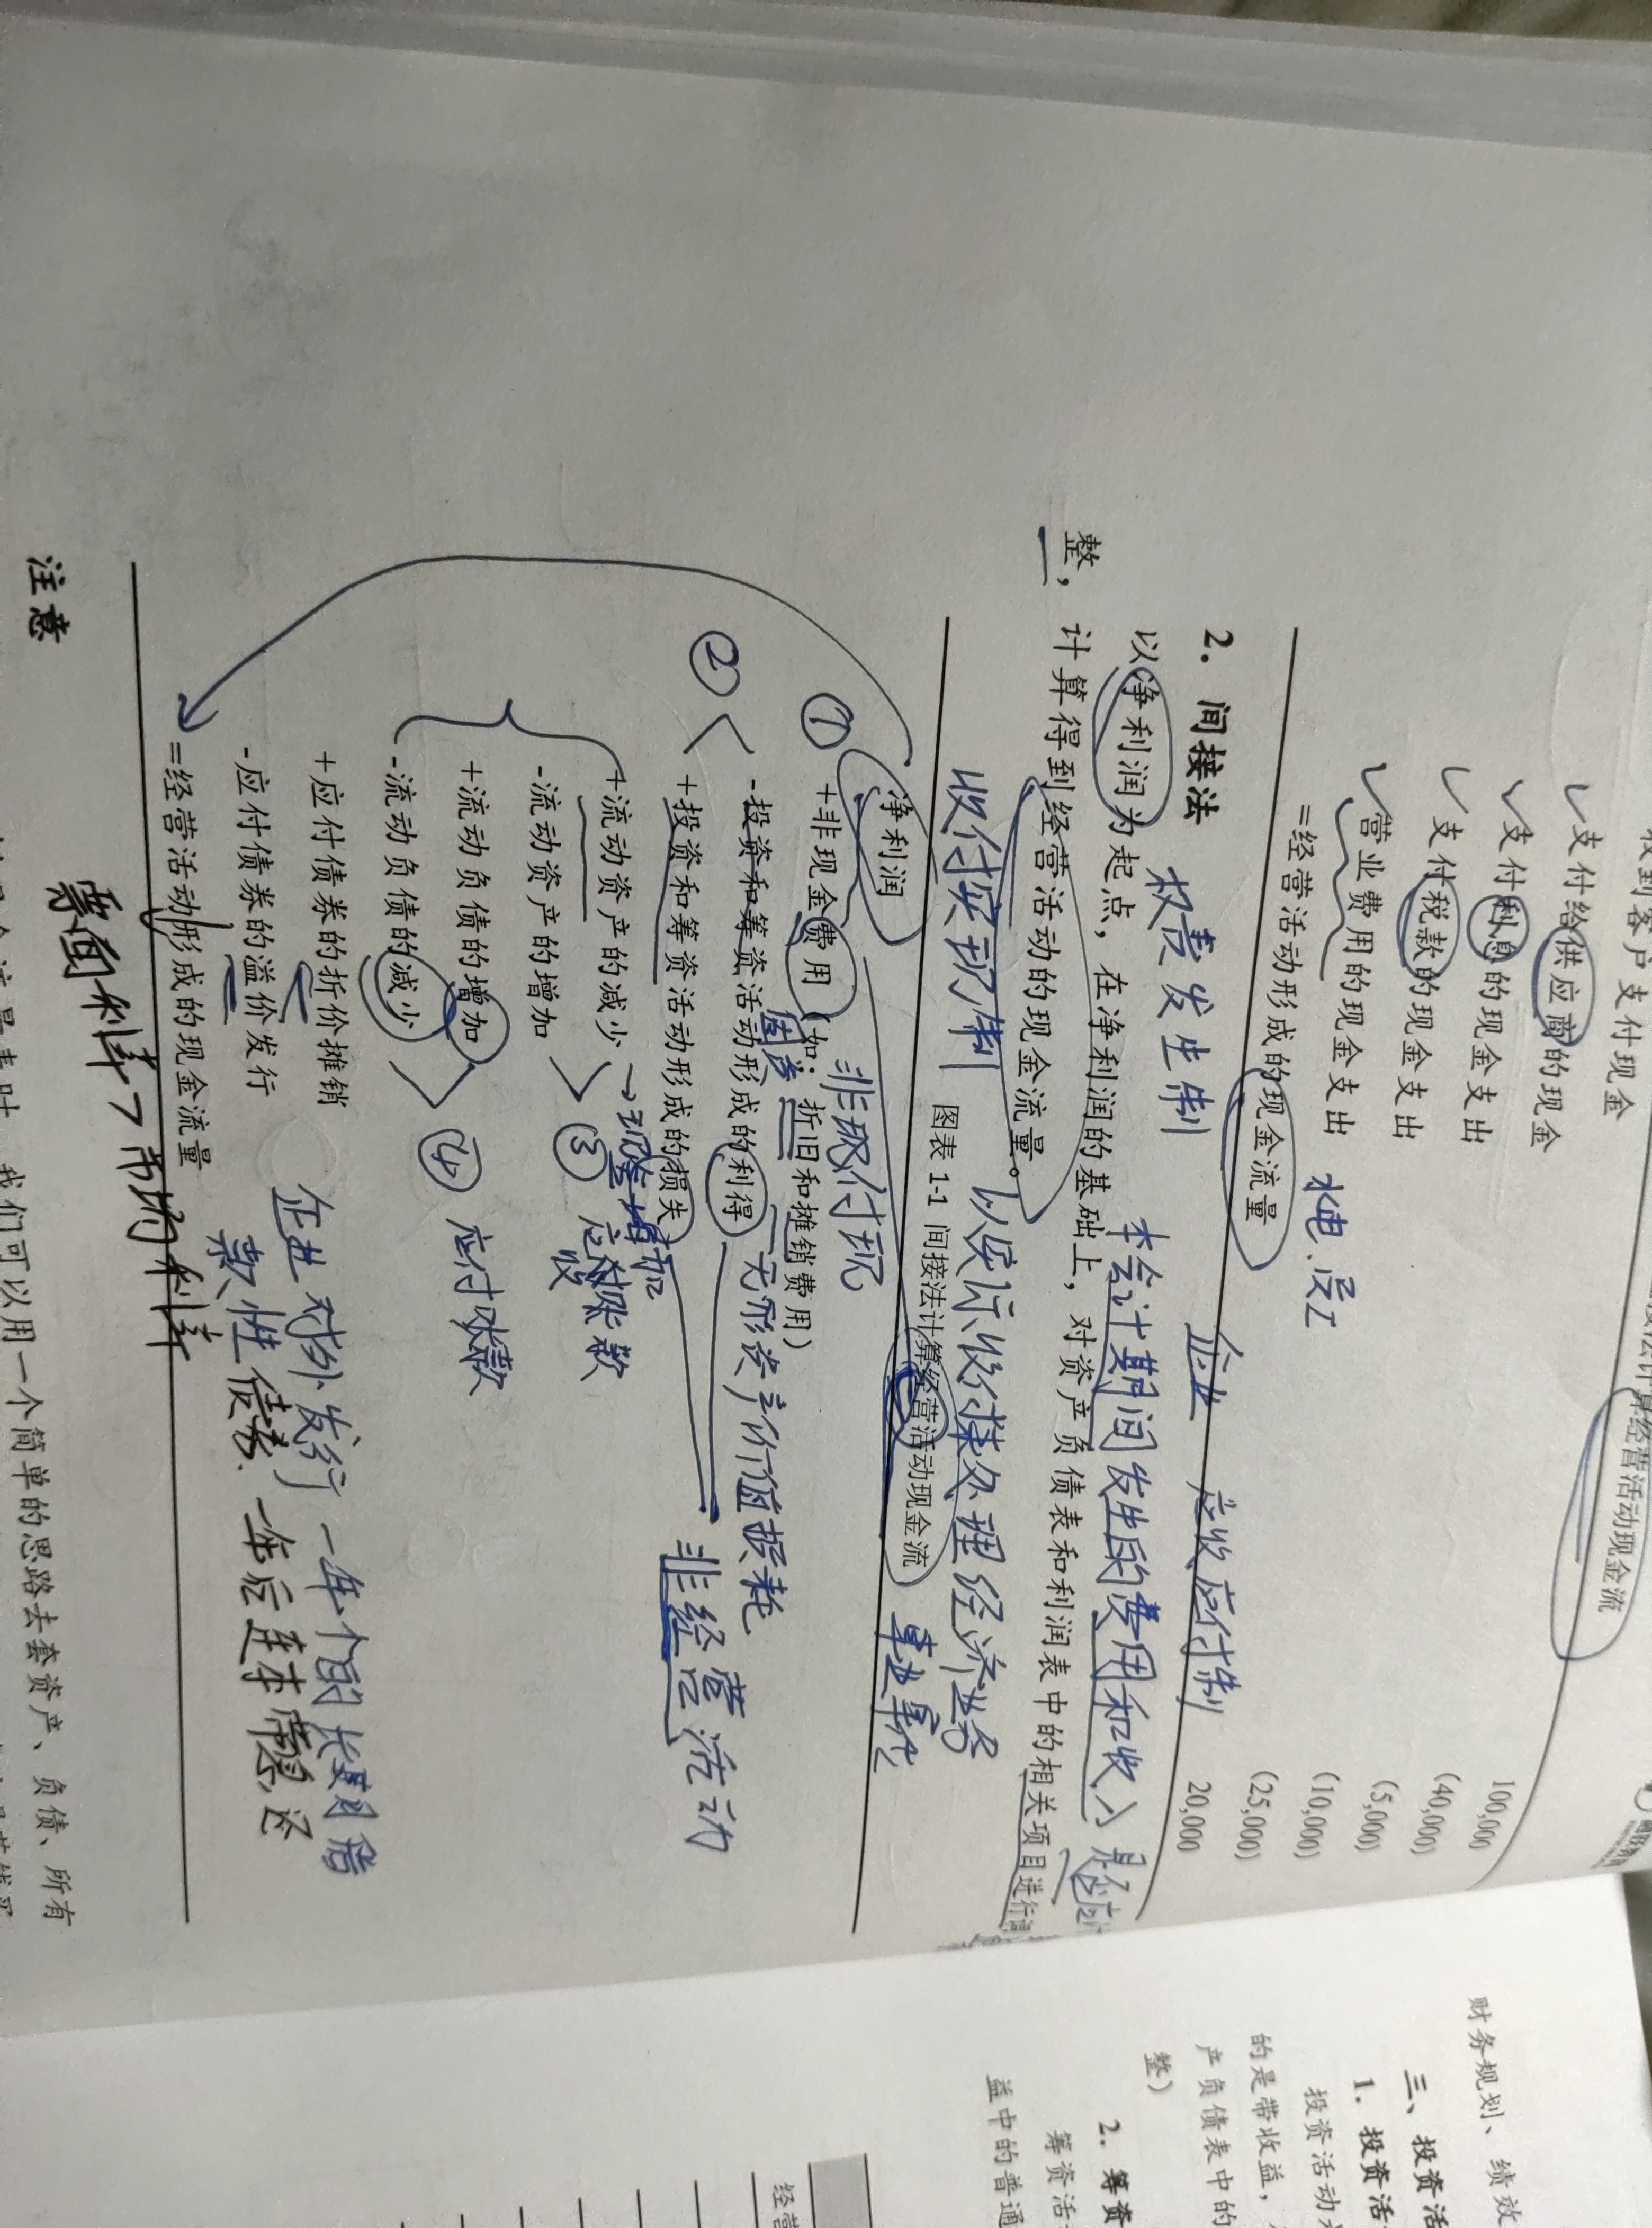 收到客户支付现金 100,000
支付给供应商的现金 (40,000)
支付利息的现金支出 (5,000)
支付税款的现金支出 (10,000)
营业费用的现金支出 (25,000)
水电、员工
=经营活动形成的现金流量 20,000
算经营活动现金流
2. 间接法
权责发生制 企业 应收应付制
本会计期间发生的费用和收入是否应
以净利润为起点，在净利润的基础上，对资产负债表和利润表中的相关项目进行调
整，计算得到经营活动的现金流量。
收付实现制 以实际收付来处理经济业务
事业单位
图表 1-1 间接法计算经营活动现金流
净利润
非现付现
① +非现金费用（如：折旧和摊销费用）
固资 无形资产价值损耗
② -投资和筹资活动形成的利得
+投资和筹资活动形成的损失
非经营活动
+流动资产的减少 →现金增加
-流动资产的增加 ③ 应收账款
+流动负债的增加
-流动负债的减少 ④ 应付账款
+应付债券的折价摊销
-应付债券的溢价发行
企业对外发行一年个的长期借
款性债务.一年后连本带息,还
=经营活动形成的现金流量
票面利率>市场利率
注意
我们可以用一个简单的思路去套资产、负债、所有
财务规划、绩效
三、投资活
1. 投资活
投资活动
的是带收益，
产负债表中的
整）
2. 筹资
筹资活
益中的普通
经营